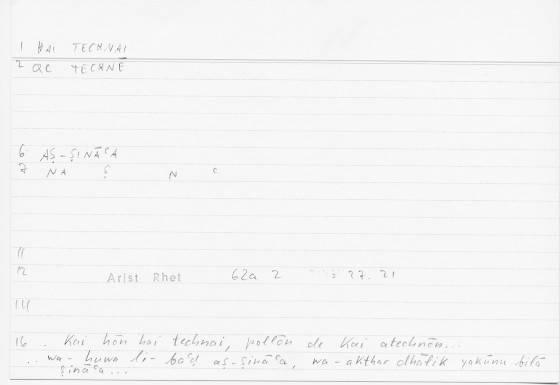 1 HAI TECHNAI
2 QC TECHNE
6 AṢ-ṢINĀᶜA
7 NA Ṣ N ᶜ
11
12 Arist Rhet 62a 2 : 27. 21
14
16 . Kai hōn hai technai, pollōn de kai atechnōn...
.. wa-huwa li-baᶜḍ aṣ-ṣināᶜa, wa-akthar dhālik yakūnu bilā
ṣināᶜa...